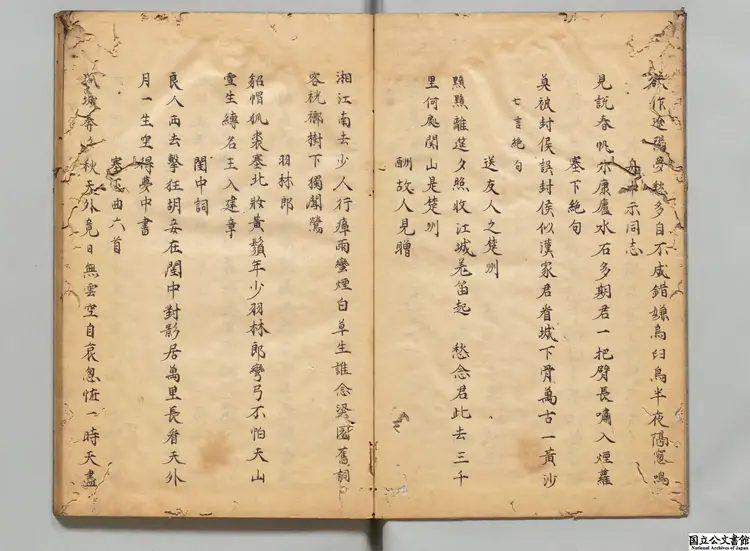 欲作遼陽夢愁多自不成錯嫌烏臼鳥半夜隔窓鳴
舟中示同志
見說春帆尔康廬水石多期君一把臂長嘯入煙蘿
塞下絶句
莫被封侯誤封侯似漢家君看城下骨萬古一黃沙
七言絶句
送友人之楚州
黯黯離筵夕照收江城暮笛起 愁念君此去三千
里何處関山是楚州
酬故人見贈
湘江南去少人行瘴雨蠻煙白草生誰念梁園舊詞
客桄榔樹下獨聞鶯
羽林郎
貂帽狐裘塞北妝黃鬚年少羽林郎彎弓不怕天山
雪生縛名王入建章
閨中詞
良人西去擊狂胡妾在閨中對影居萬里長看天外
月一生空得夢中書
塞下曲六首
秋天外竟日無雲空自哀忽怪一時天盡